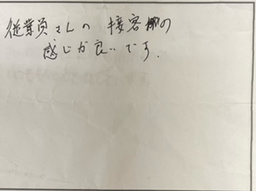 従業員さんの接客の
感じが良いです。